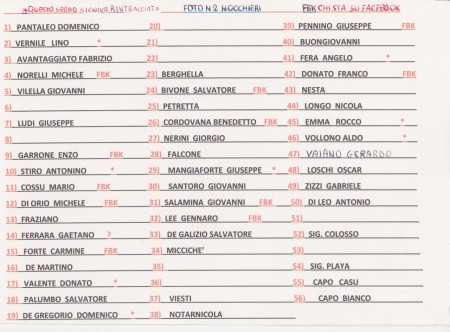 * QUESTO SEGNO SIGNIFICA RINTRACCIATO FOTO N 2 NOCCHIERI FBK CHI STA SU FACEBOOK
1) PANTALEO DOMENICO 20) 39) PENNINO GIUSEPPE FBK
2) VERNILE LINO * 21) 40) BUONGIOVANNI
3) AVANTAGGIATO FABRIZIO 22) 41) FERA ANGELO *
4) NORELLI MICHELE FBK 23) BERGHELLA 42) DONATO FRANCO FBK
5) VILELLA GIOVANNI 24) BIVONE SALVATORE FBK 43) NESTA
6) 25) PETRETTA 44) LONGO NICOLA
7) LUDI GIUSEPPE 26) CORDOVANA BENEDETTO FBK 45) EMMA ROCCO *
8) 27) NERINI GIORGIO 46) VOLLONO ALDO *
9) GARRONE ENZO FBK 28) FALCONE 47) VAIANO GERARDO
10) STIRO ANTONINO * 29) MANGIAFORTE GIUSEPPE * 48) LOSCHI OSCAR
11) COSSU MARIO FBK 30) SANTORO GIOVANNI 49) ZIZZI GABRIELE
12) DI ORIO MICHELE FBK 31) SALAMINA GIOVANNI FBK 50) DI LEO ANTONIO
13) FRAZIANO 32) LEE GENNARO FBK 51)
14) FERRARA GAETANO ? 33) DE GALIZIO SALVATORE 52) SIG. COLOSSO
15) FORTE CARMINE FBK 34) MICCICHE' 53)
16) DE MARTINO 35) 54) SIG. PLAYA
17) VALENTE DONATO * 36) 55) CAPO CASU
18) PALUMBO SALVATORE 37) VIESTI 56) CAPO BIANCO
19) DE GREGORIO DOMENICO * 38) NOTARNICOLA